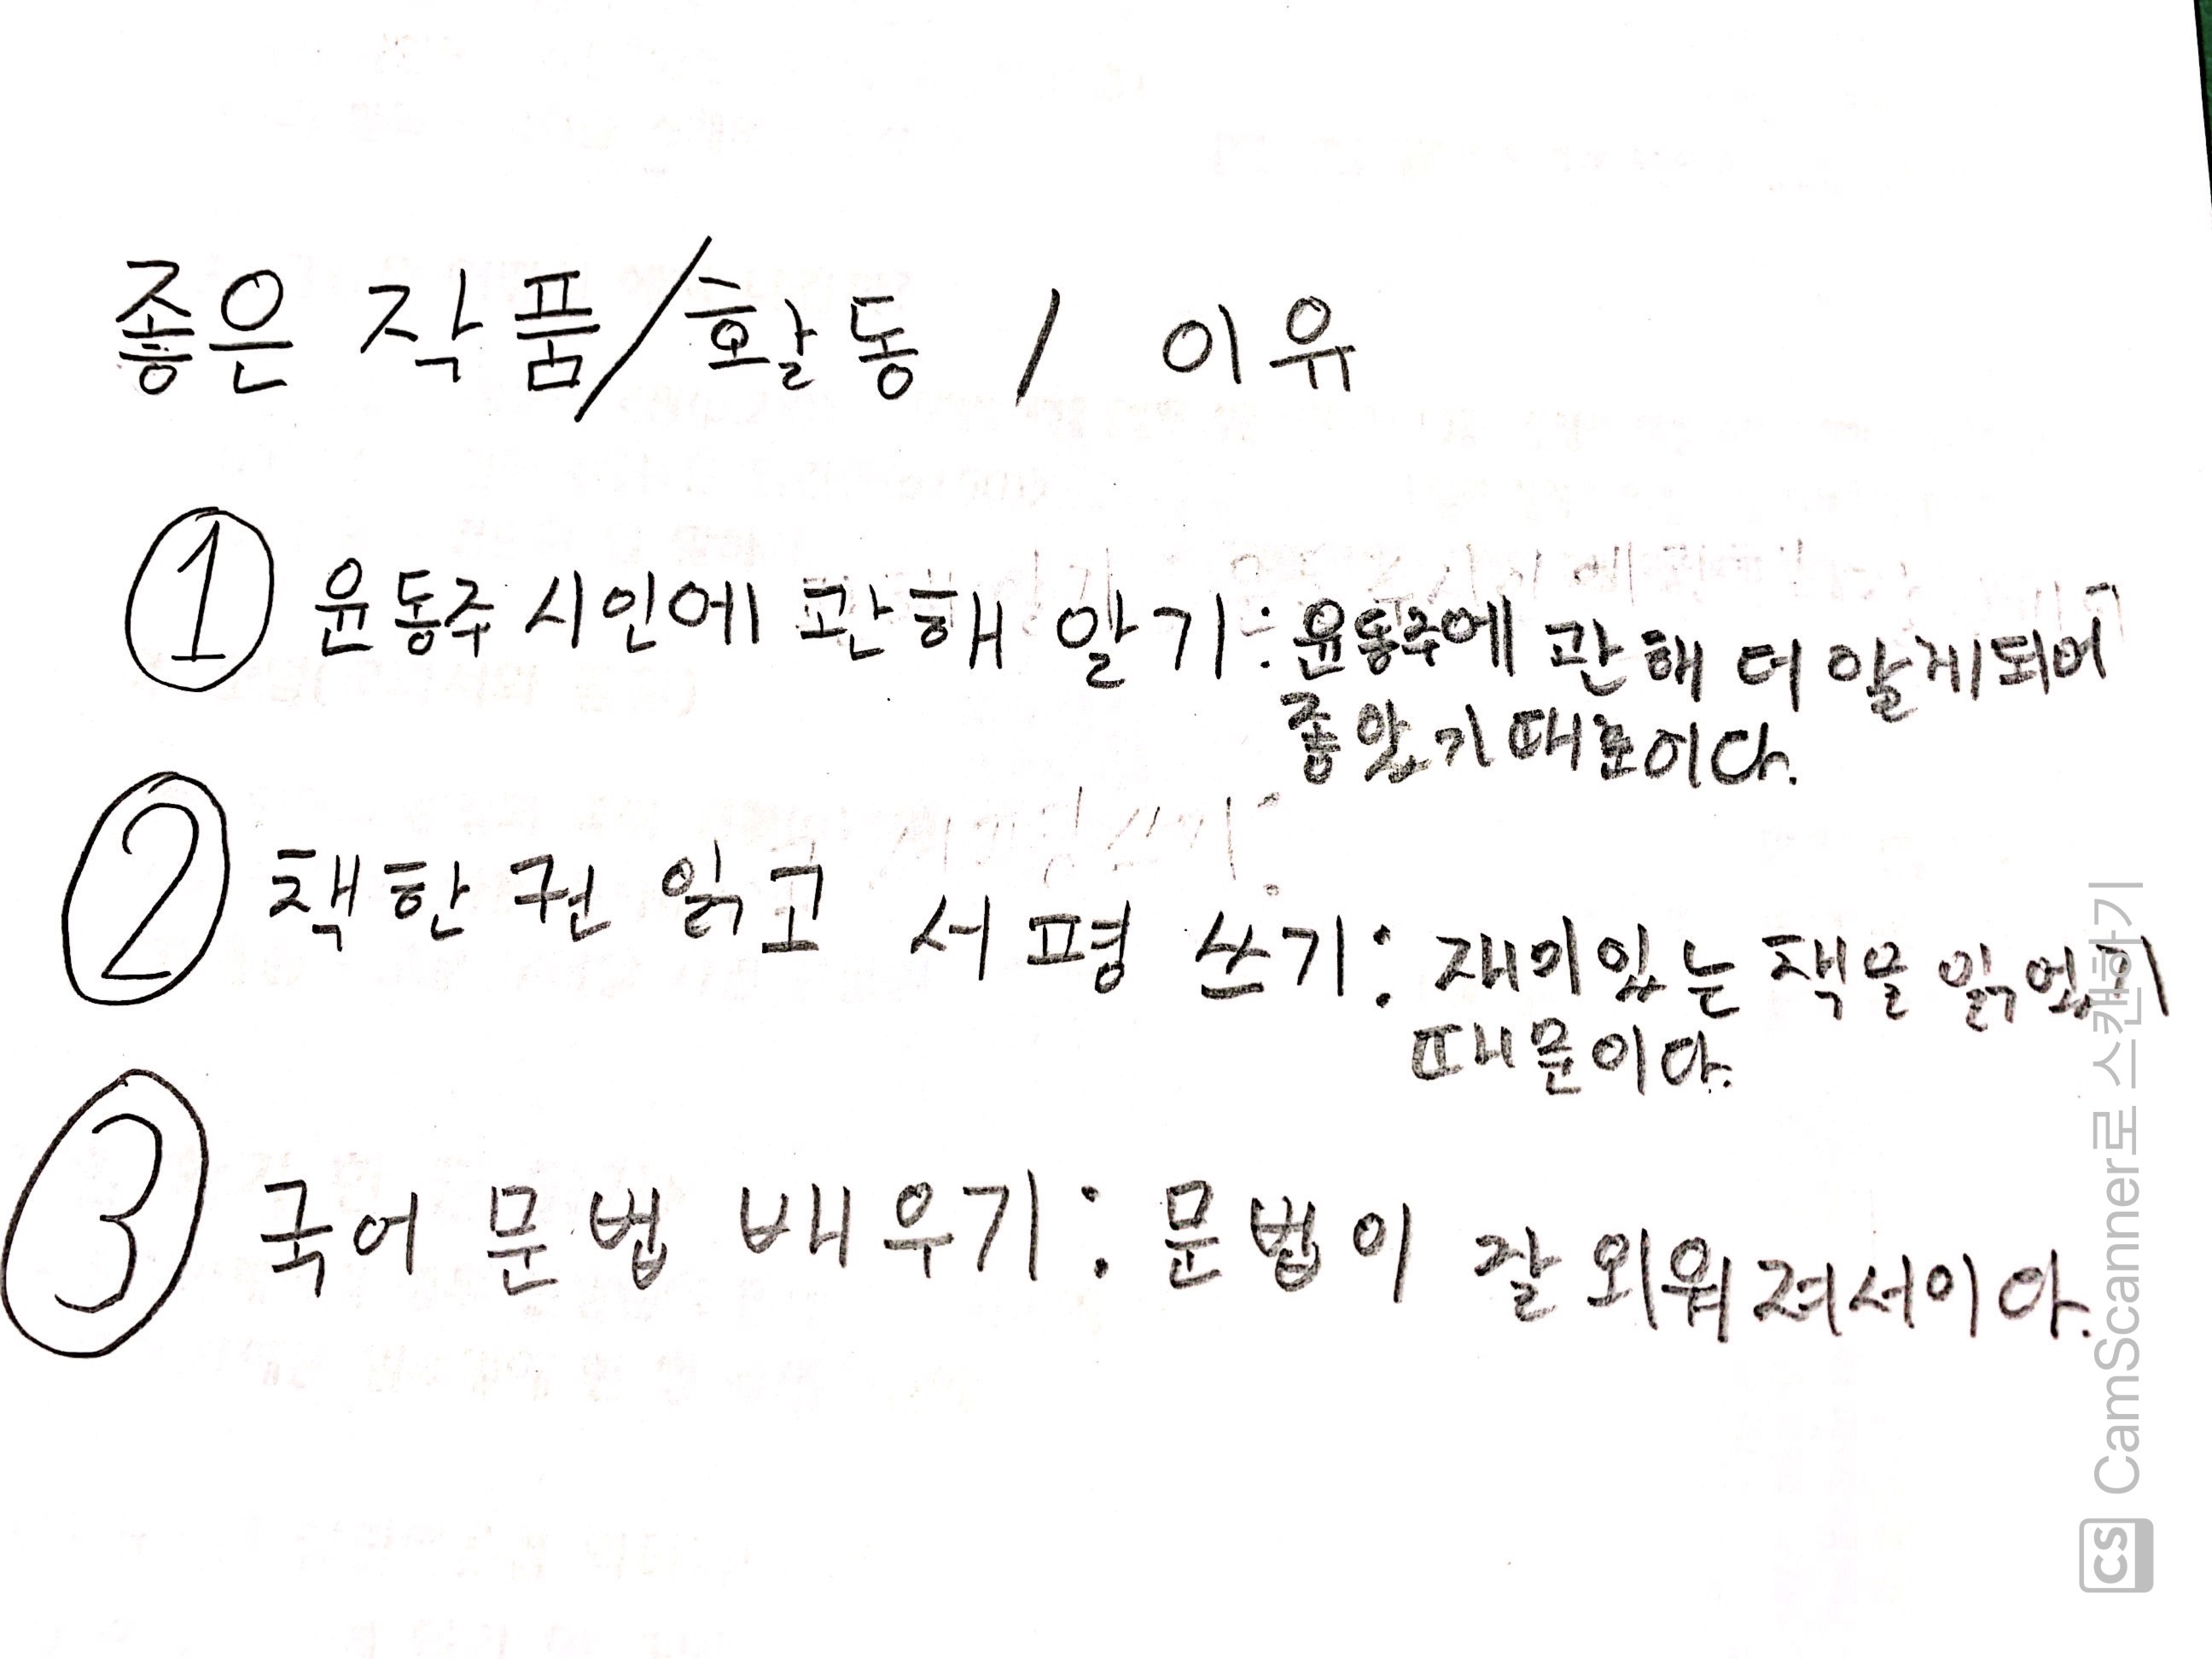 좋은 작품/활동 / 이유
① 윤동주 시인에 관해 알기: 윤동주에 관해 더 알게되어
좋았기 때문이다.
② 책 한 권 읽고 서평 쓰기: 재미있는 책을 읽었기
때문이다.
③ 국어 문법 배우기: 문법이 잘 외워져서이다.
CS CamScanner로 스캔하기